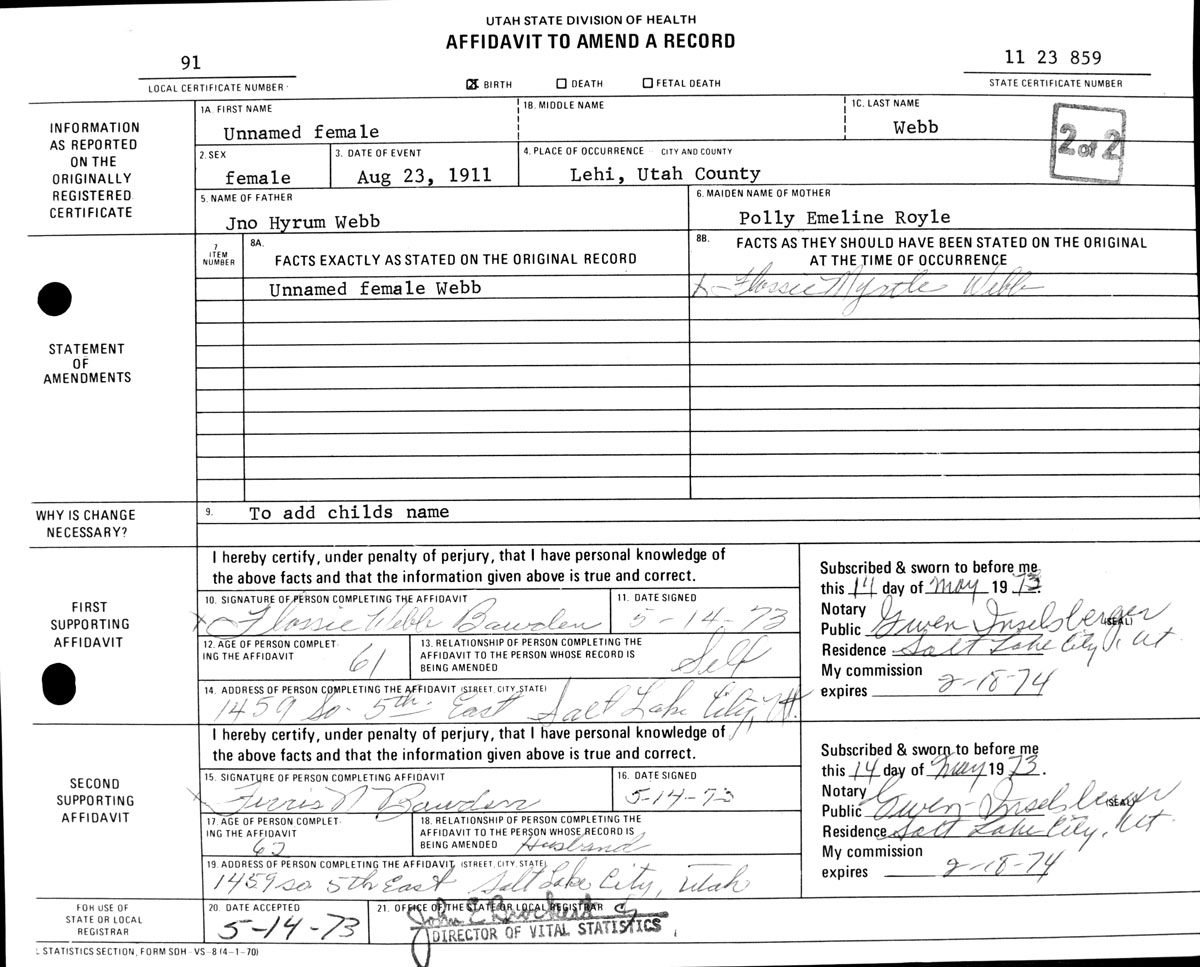 UTAH STATE DIVISION OF HEALTH
AFFIDAVIT TO AMEND A RECORD
91
LOCAL CERTIFICATE NUMBER
☒ BIRTH ☐ DEATH ☐ FETAL DEATH
11 23 859
STATE CERTIFICATE NUMBER
INFORMATION
AS REPORTED
ON THE
ORIGINALLY
REGISTERED
CERTIFICATE
1A. FIRST NAME
Unnamed female
1B. MIDDLE NAME
1C. LAST NAME
Webb
2 of 2
2. SEX
female
3. DATE OF EVENT
Aug 23, 1911
4. PLACE OF OCCURRENCE – CITY AND COUNTY
Lehi, Utah County
5. NAME OF FATHER
Jno Hyrum Webb
6. MAIDEN NAME OF MOTHER
Polly Emeline Royle
STATEMENT
OF
AMENDMENTS
7
ITEM
NUMBER
8A.
FACTS EXACTLY AS STATED ON THE ORIGINAL RECORD
8B.
FACTS AS THEY SHOULD HAVE BEEN STATED ON THE ORIGINAL
AT THE TIME OF OCCURRENCE
Unnamed female Webb
X Flossie Myrtle Webb
WHY IS CHANGE
NECESSARY?
9. To add childs name
FIRST
SUPPORTING
AFFIDAVIT
I hereby certify, under penalty of perjury, that I have personal knowledge of
the above facts and that the information given above is true and correct.
10. SIGNATURE OF PERSON COMPLETING THE AFFIDAVIT
X Flossie Webb Bawden
11. DATE SIGNED
5-14-73
12. AGE OF PERSON COMPLET-
ING THE AFFIDAVIT
61
13. RELATIONSHIP OF PERSON COMPLETING THE
AFFIDAVIT TO THE PERSON WHOSE RECORD IS
BEING AMENDED
Self
14. ADDRESS OF PERSON COMPLETING THE AFFIDAVIT (STREET, CITY, STATE)
1459 So. 5th East Salt Lake City, Ut.
Subscribed & sworn to before me
this 14 day of May 19 73.
Notary
Public Gwen Inselsberger (SEAL)
Residence Salt Lake City, Ut
My commission
expires 2-18-74
SECOND
SUPPORTING
AFFIDAVIT
I hereby certify, under penalty of perjury, that I have personal knowledge of
the above facts and that the information given above is true and correct.
15. SIGNATURE OF PERSON COMPLETING AFFIDAVIT
X Ferris N Bawden
16. DATE SIGNED
5-14-73
17. AGE OF PERSON COMPLET-
ING THE AFFIDAVIT
62
18. RELATIONSHIP OF PERSON COMPLETING THE
AFFIDAVIT TO THE PERSON WHOSE RECORD IS
BEING AMENDED
Husband
19. ADDRESS OF PERSON COMPLETING THE AFFIDAVIT, (STREET, CITY, STATE)
1459 so 5th East Salt Lake City, Utah
Subscribed & sworn to before me
this 14 day of May 19 73.
Notary
Public Gwen Inselsberger (SEAL)
Residence Salt Lake City, Ut
My commission
expires 2-18-74
FOR USE OF
STATE OR LOCAL
REGISTRAR
20. DATE ACCEPTED
5-14-73
21. OFFICE OF THE STATE OR LOCAL REGISTRAR
John E Brockert
DIRECTOR OF VITAL STATISTICS
L STATISTICS SECTION, FORM SDH-VS-8 (4-1-70)